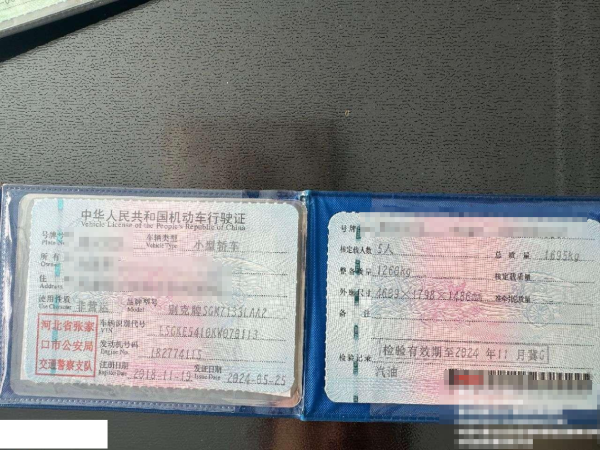 中华人民共和国机动车行驶证
Vehicle License of the People's Republic of China
号牌号码
Plate No.
车辆类型
Vehicle Type
小型轿车
所有
Owner
住
使用性质
Use Character
非营运
品牌型号
Model
别克牌SGM7153LAA2
河北省张家
口市公安局
交通警察支队
车辆识别代号
VIN
发动机号码
Engine No.
182774115
注册日期
Register Date
2018-11-19
发证日期
Issue Date
2024-05-25
号牌
核定载人数 5人
总质量 1695kg
整备质量 1260kg
核定载质量
外廓尺寸
准牵引总质量
备注
检验记录
检验有效期至2024年11月冀G
汽油